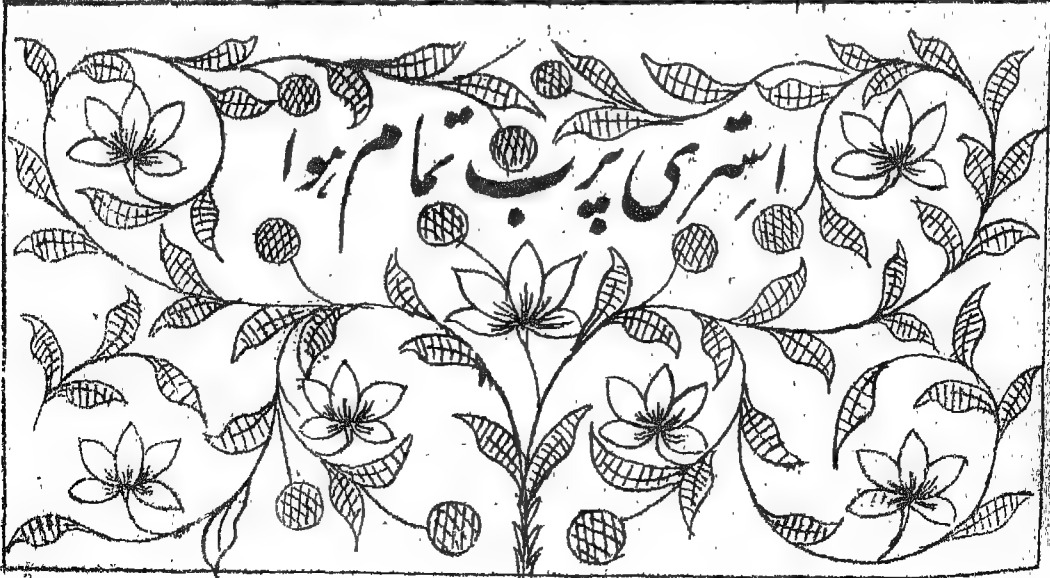 استری پرب تمام ہوا